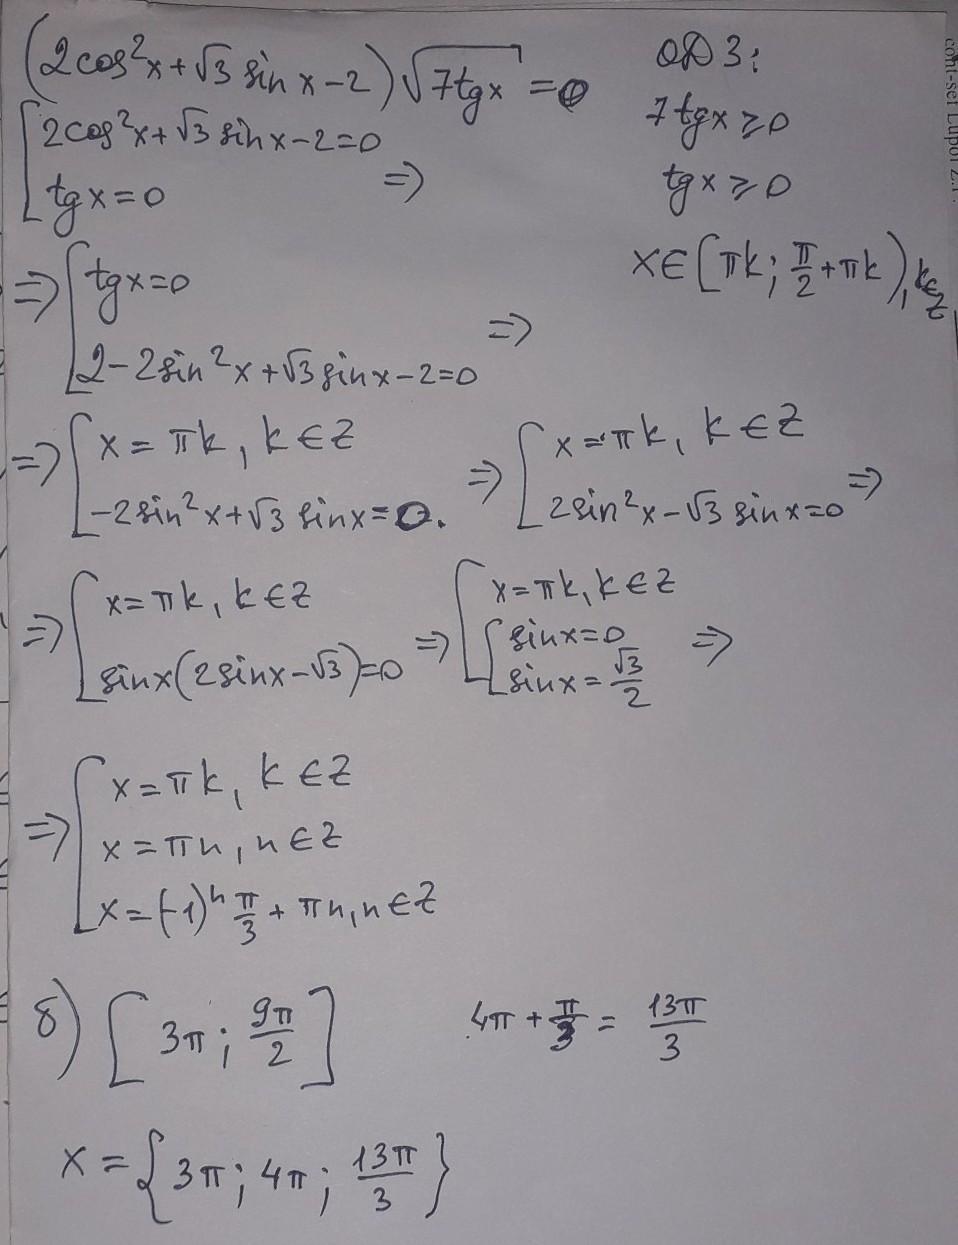 (2cos²x+√3 sin x-2)√7tgx =0
ОДЗ:
[2cos²x+√3 sinx-2=0
7tgx⩾0
[tgx=0 =>
tgx⩾0
x∈[πk; π/2+πk), k∈Z
=> [tgx=0
[2-2sin²x+√3sinx-2=0 =>
=> [x=πk, k∈Z
[-2sin²x+√3 sinx=0.
=> [x=πk, k∈Z
[2sin²x-√3 sinx=0 =>
=> [x=πk, k∈Z
[sinx(2sinx-√3)=0
=> [x=πk, k∈Z
[sinx=0
[sinx=√3/2 =>
=> [x=πk, k∈Z
x=πn, n∈Z
[x=(-1)ⁿ π/3 + πn, n∈Z
б) [3π; 9π/2]
4π+π/3=13π/3
x={3π; 4π; 13π/3}